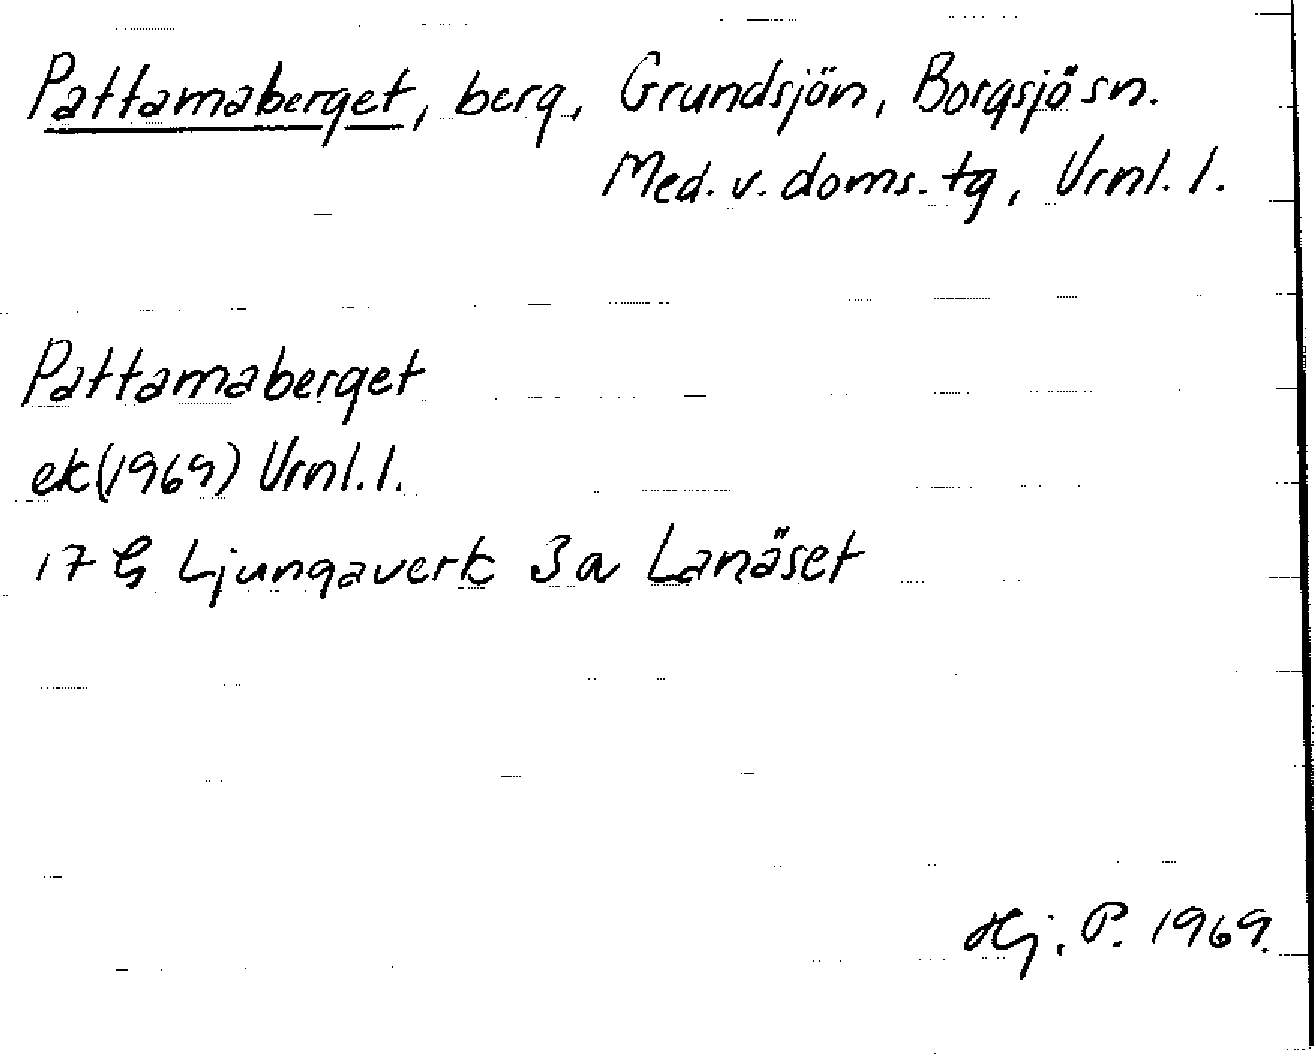 Pattamaberget, berg, Grundsjön, Borgsjö sn.
Med. v. doms. tg, Vrnl. l.
Pattamaberget
ek (1969) Vrnl. l.
17 G Ljungaverk 3 a Lanäset
Hj. P. 1969.